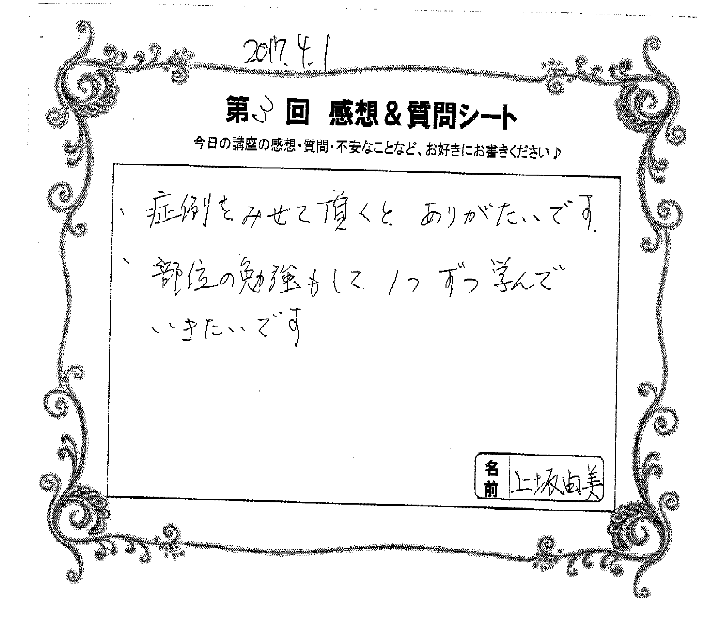 2017.4.1
第3回 感想&質問シート
今日の講座の感想・質問・不安なことなど、お好きにお書きください♪
、症例をみせて頂くと ありがたいです
、部位の勉強もして 1つずつ学んで
いきたいです
名前 上坂由美